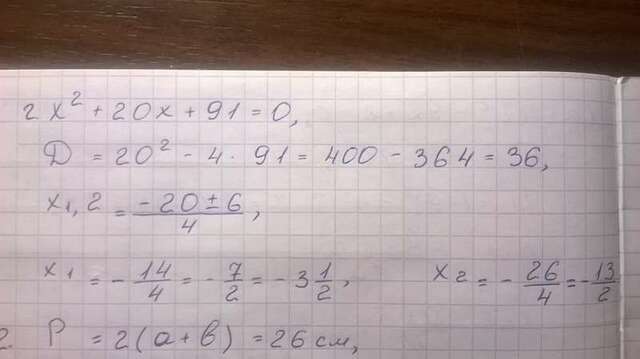 2x² + 20x + 91 = 0,
D = 20² - 4 · 91 = 400 - 364 = 36,
x₁,₂ = (-20 ± 6)/4,
x₁ = -14/4 = -7/2 = -3 1/2, x₂ = -26/4 = -13/2
2. P = 2(a + b) = 26 см,